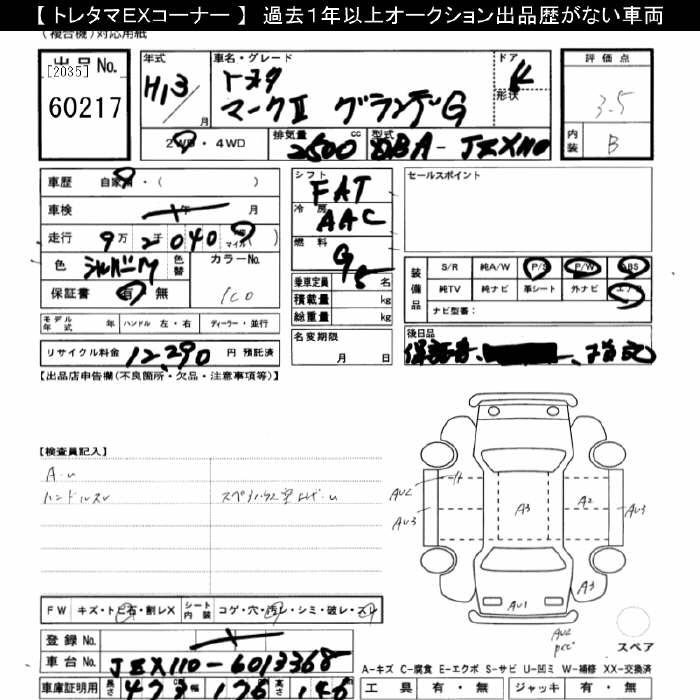 【 トレタマEXコーナー 】 過去1年以上オークション出品歴がない車両
(複合機)対応用紙
出品No.
[2035]
60217
年式
H13/
月
車名・グレード
トヨタ
マークⅡ グランデG
ドア
4
形状
2WD・4WD
排気量
2500
cc
型式
GBA-JZX110
評価点
3.5
内装
B
車歴 自家用・( )
車検 年 月
走行 9万2千040 マイル( )
色 シルバーM
色替
カラーNo.
1C0
保証書 有・無
シフト FAT
冷房 AAC
燃料 G
乗車定員 5 名
積載量 kg
総重量 kg
セールスポイント
装備品
S/R 純A/W P/S P/W ABS
純TV 純ナビ 革シート 外ナビ エアB
ナビ型番:
モデル年式 年 ハンドル 左・右 ディーラー・並行
リサイクル料金 12,290 円 預託済
名変期限
月 日
後日品
保証書、
【出品店申告欄(不良箇所・欠品・注意事項等)】
【検査員記入】
A.U
ハンドルスレ
AU2
AU3
A3
A2
AU3
A3
AU1
AU2
FW キズ・トビ石・割レX
シート内装
コゲ・穴・汚レ・シミ・破レ・スレ
登録 No.
車台 No. JZX110-6013368
車庫証明用 長さ 473 幅 176 高さ 146
スペア
A-キズ C-腐食 E-エクボ S-サビ U-凹ミ W-補修 XX-交換済
工具 有・無 ジャッキ 有・無